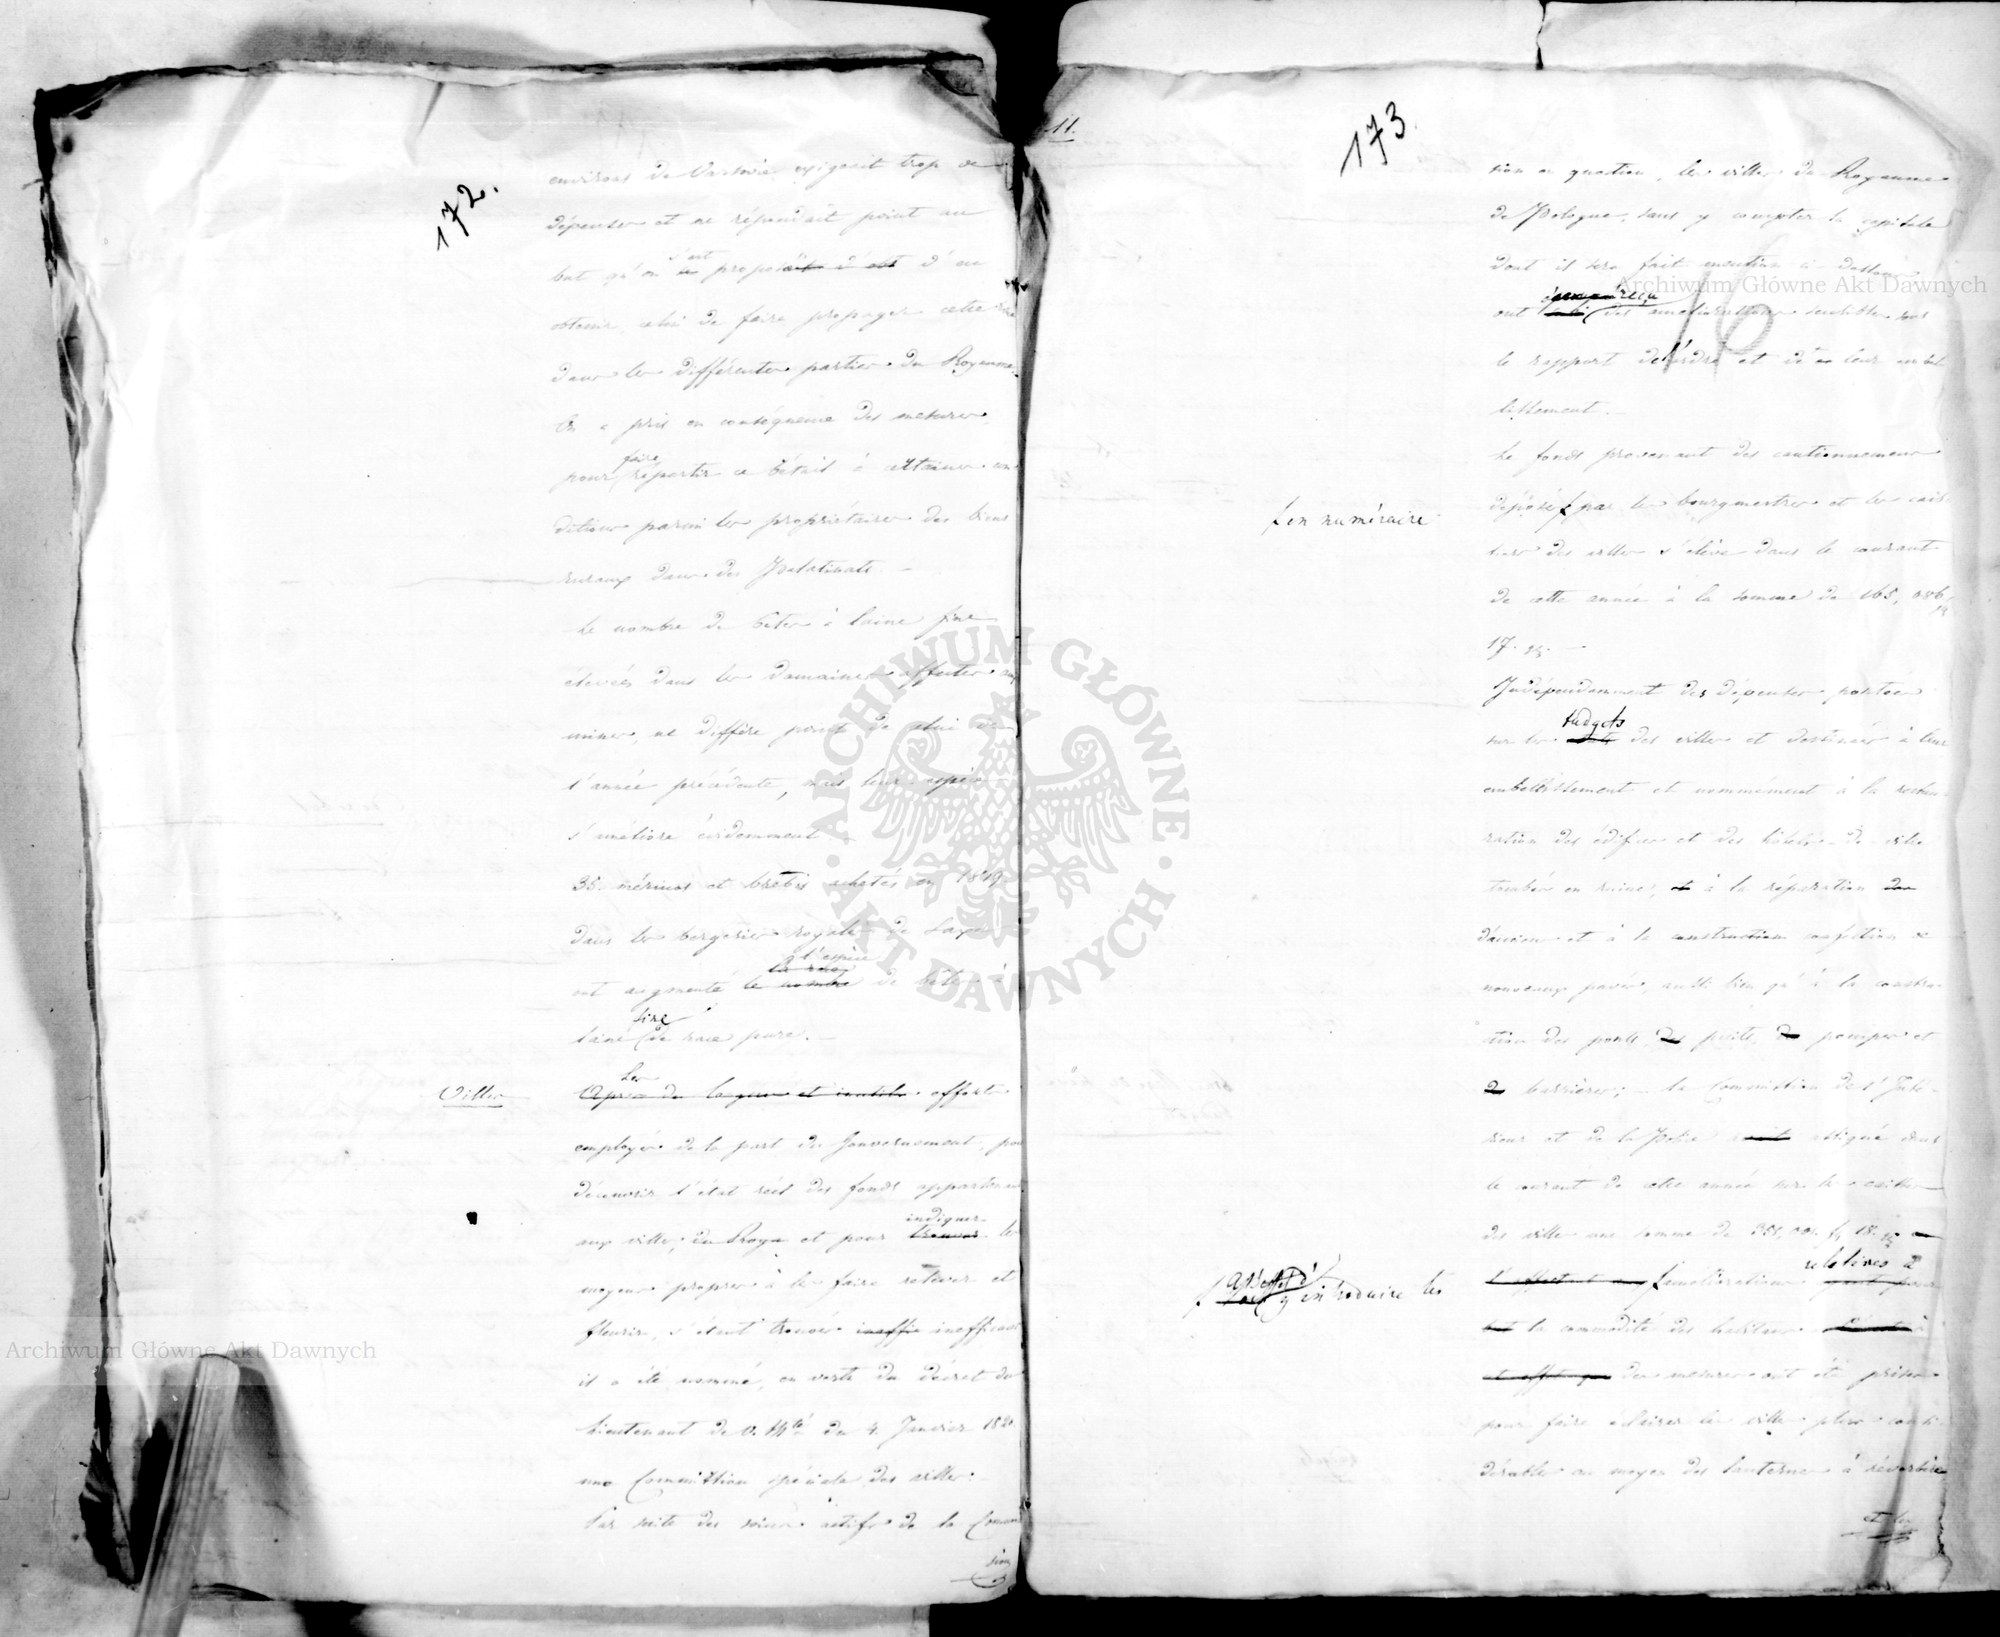 172.
environs de Varsovie exigeait trop de
dépenses et ne répondait point au
but qu'on s'est proposé d'en
obtenir, celui de faire propager cette race
dans les différentes parties du Royaume.
On a pris en conséquence des mesures
pour faire répartir ce bétail à certaines con
ditions parmi les propriétaires des biens
ruraux dans les Palatinats. —
Le nombre de bêtes à laine fine
élevées dans les domaines affectés aux
mines, ne diffère point de celui de
l'année précédente, mais leur espèce
s'améliore évidemment.
35. mérinos et brebis achetés en 1819
dans les bergeries royales de Saxe
l'espèce
la race
ont augmenté le nombre de bêtes à
laine fine de race pure. —
Villes
Les
Après de longs et inutiles efforts
employés de la part du Gouvernement, pour
découvrir l'état réel des fonds appartenans
aux villes du Roya et pour trouver indiquer les
moyens propres à les faire relever et
fleurir, s'étant trouvés ineffic inefficaces
il a été nommé, en vertu du décret du
Lieutenant de V. Mté du 4. Janvier 182
une Commission spéciale des villes. —
Par suite des soins actifs de la Commis
sion
11.
173.
16
sion en question, les villes du Royaume
de Pologne, sans y compter la capitale
dont il sera fait mention ci-dessous
ont des améliorations sensibles sous
le rapport de l'ordre et de leur embel
lissement.
Le fonds provenant des cautionnemens
déposés par les bourgmestres et les cais
en numéraire
siers des villes s'élève dans le courant
de cette année à la somme de 165,086,
17.
Indépendamment des dépenses portées
sur les budgets des villes et destinées à leur
embellissement et nommément à la restau-
ration des édifices et des hôtels-de-ville
tombés en ruine, et à la réparation des
d'anciens et à la construction confection de
nouveaux pavés, aussi bien qu'à la constru-
ction des ponts des puits, de pompes et
de barrières; — la Commission de l'Inté-
rieur et de la Police assigné dans
le courant de cette année sur les caisses
des villes une somme de 351,001. f. 18.
à l'effet d'y introduire les
améliorations relatives à
la commodité des habitans
des mesures ont été prises
pour faire éclairer les villes plus consi
dérables au moyen des lanternes à réverbère
et les
Archiwum Główne Akt Dawnych
Archiwum Główne Akt Dawnych
ARCHIWUM GŁÓWNE · AKT DAWNYCH ·